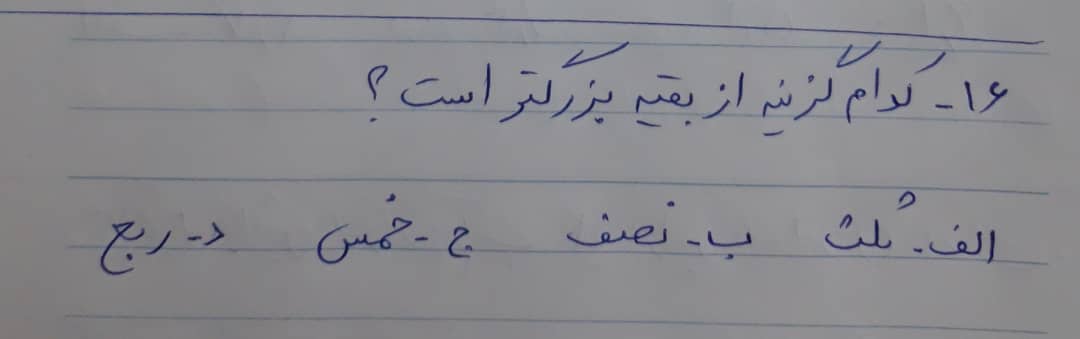 ۱۶- کدام گزینه از بقیه بزرگتر است ؟
الف- ثُلث ب- نصف ج- خُمس د- ربع